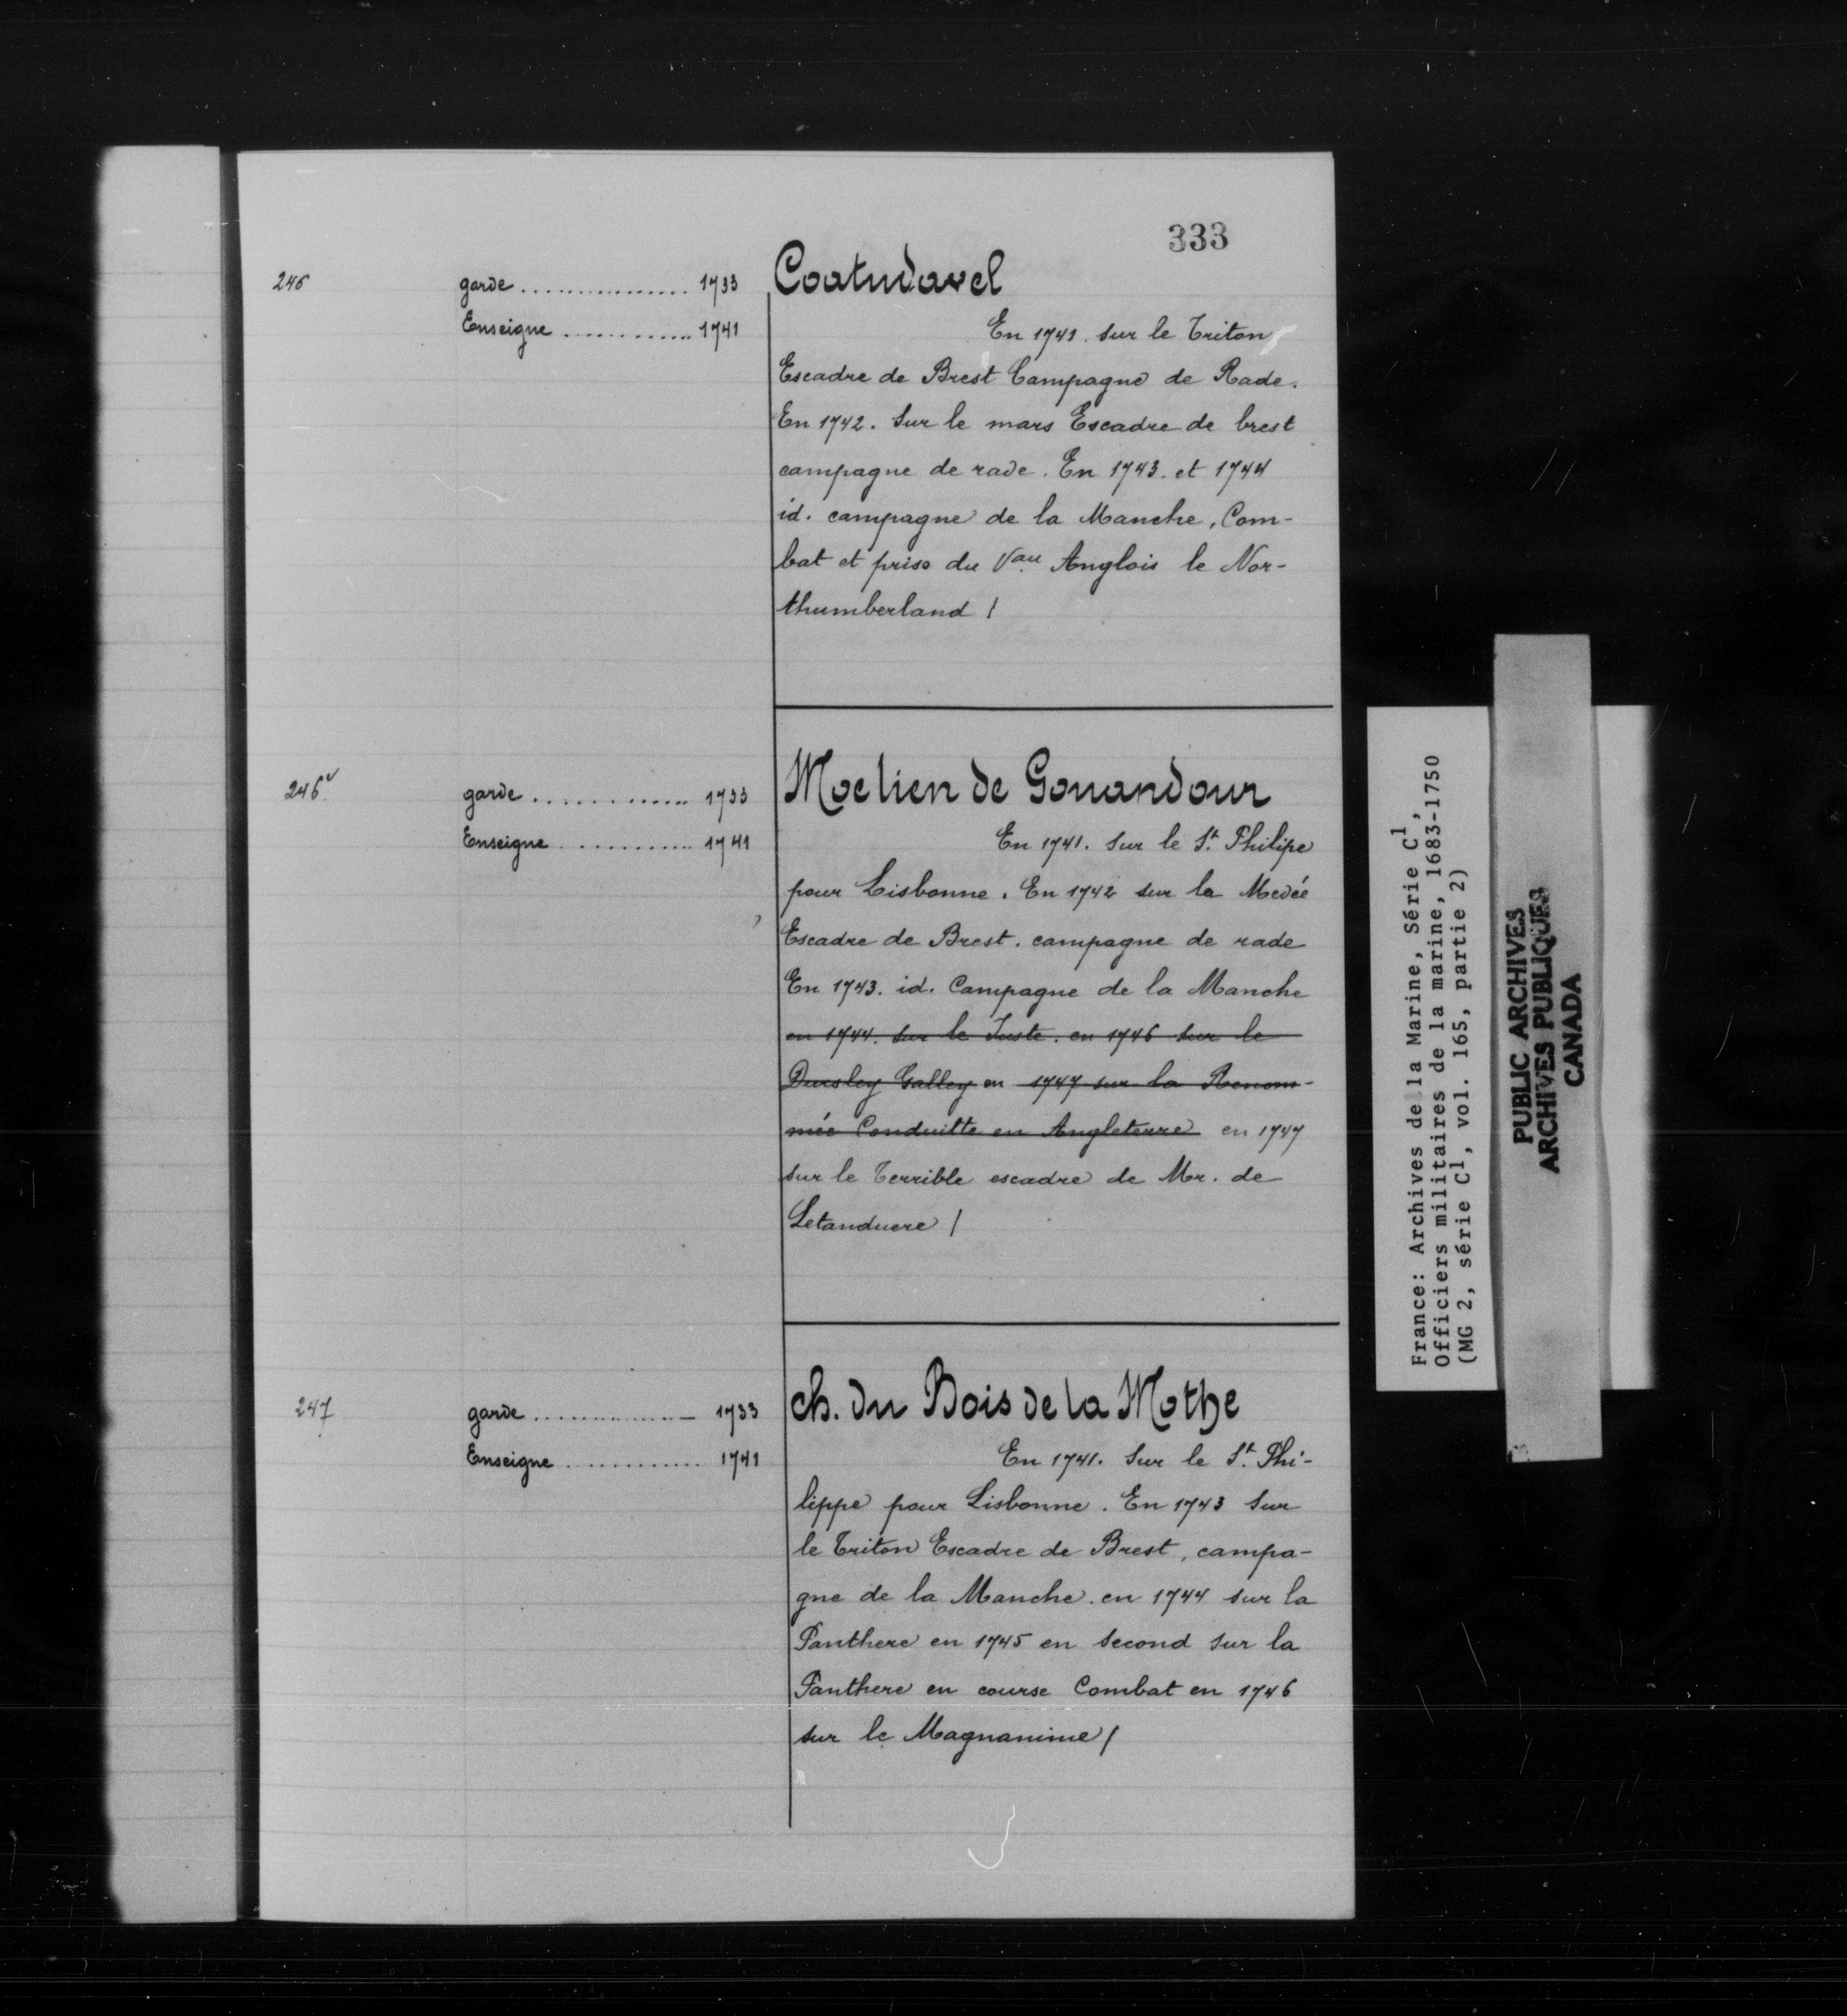 333
246
garde ................ 1733
Enseigne ............. 1741
Coatudavel
En 1741. sur le Triton
Escadre de Brest Campagne de Rade.
En 1742. Sur le mars Escadre de brest
campagne de rade. En 1743. et 1744
id. campagne de la Manche, Com-
bat et prise du Vau Anglois le Nor-
thumberland /
246v
garde .............. 1733
Enseigne ............. 1741
Moelien de Gouandour
En 1741. sur le St. Philipe
pour Lisbonne. En 1742 sur la Medée
Escadre de Brest. campagne de rade
En 1743. id. Campagne de la Manche
en 1744. sur le Juste. en 1746 sur le
Dursley Galley en 1747 sur la Renom-
mée Conduitte en Angleterre en 1747
sur le Terrible escadre de Mr. de
Letanduere /
247
garde ................ 1733
Enseigne ............. 1741
ch. du Bois de la Mothe
En 1741. Sur le St. Phi-
lippe pour Lisbonne. En 1743 Sur
le Triton Escadre de Brest, campa-
gne de la Manche. en 1744 sur la
Panthere en 1745 en second sur la
Panthere en course Combat en 1746
sur le Magnanime /
France: Archives de la Marine, Série C1,
Officiers militaires de la marine, 1683-1750
(MG 2, série C1, vol. 165, partie 2)
PUBLIC ARCHIVES
ARCHIVES PUBLIQUES
CANADA